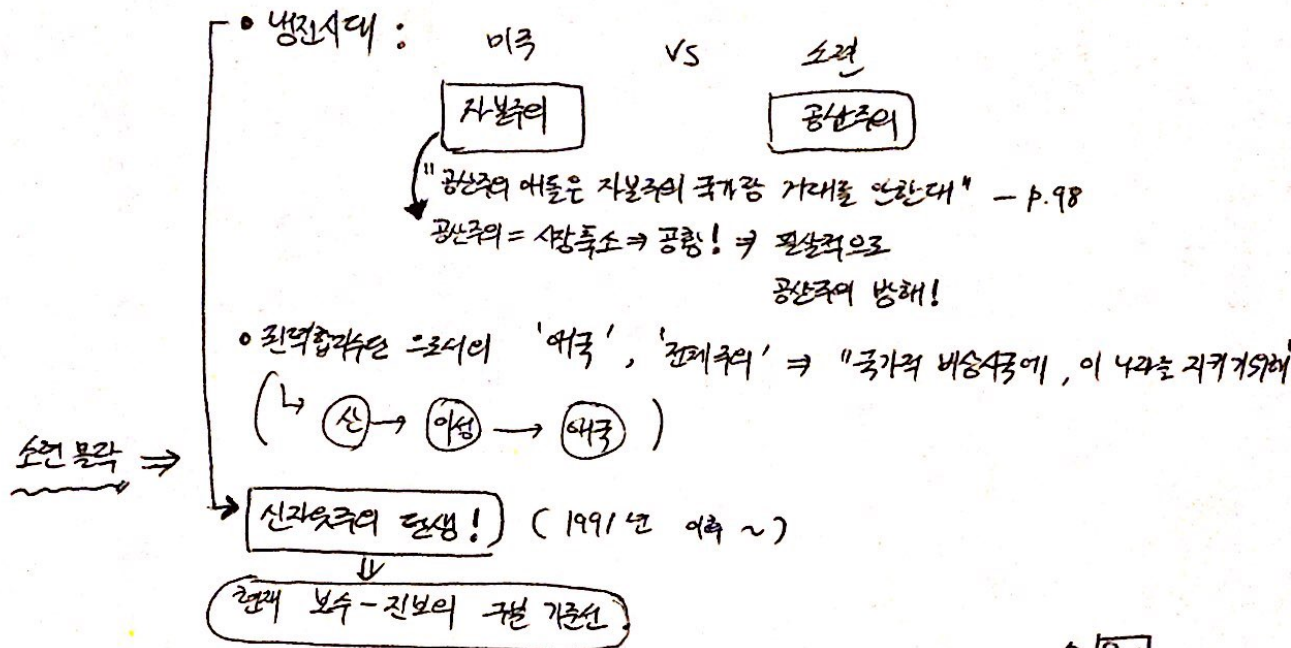 • 냉전시대 : 미국 VS 소련
자본주의 공산주의
"공산주의 애들은 자본주의 국가랑 거래를 안한대" – p.98
공산주의 = 시장축소 ⇒ 공황! ⇒ 필살적으로
공산주의 방해!
• 권력합리수단 으로서의 '애국', '전체주의' ⇒ "국가적 비상시국에, 이 나라를 지키기위해"
( ↳ 신 → 이성 → 애국 )
소련 몰락 ⇒
신자유주의 탄생! ( 1991년 이후 ~ )
⇓
현재 보수 – 진보의 구분 기준선